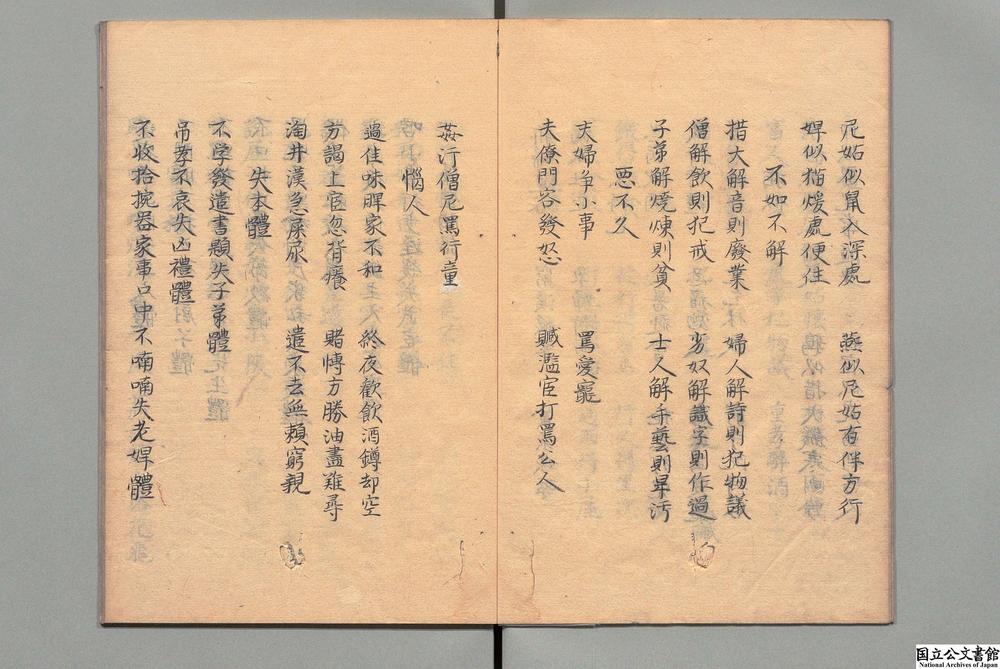 尼姑似鼠入深處　燕似尼姑有伴方行
婢似猫煖處便住
不如不解
措大解音則廢業　婦人解詩則犯物議
僧解飲則犯戒　劣奴解識字則作過
子弟解燒煉則貧　士人解手藝則卑污
惡不久
夫婦爭小事　罵愛寵
夫僚門客發怒　贓濫官打罵公人
姦汙僧尼罵行童
惱人
遇佳味脾家不和　終夜歡飲酒罇却空
方謁上官忽背癢　賭愽方勝油盡難尋
淘井漢急屎尿　遣不去無賴窮親
失本體
不学發遣書題失子弟體
吊孝不哀失凶禮體
不收拾椀器家事口中不喃喃失老婢體
国立公文書館
National Archives of Japan